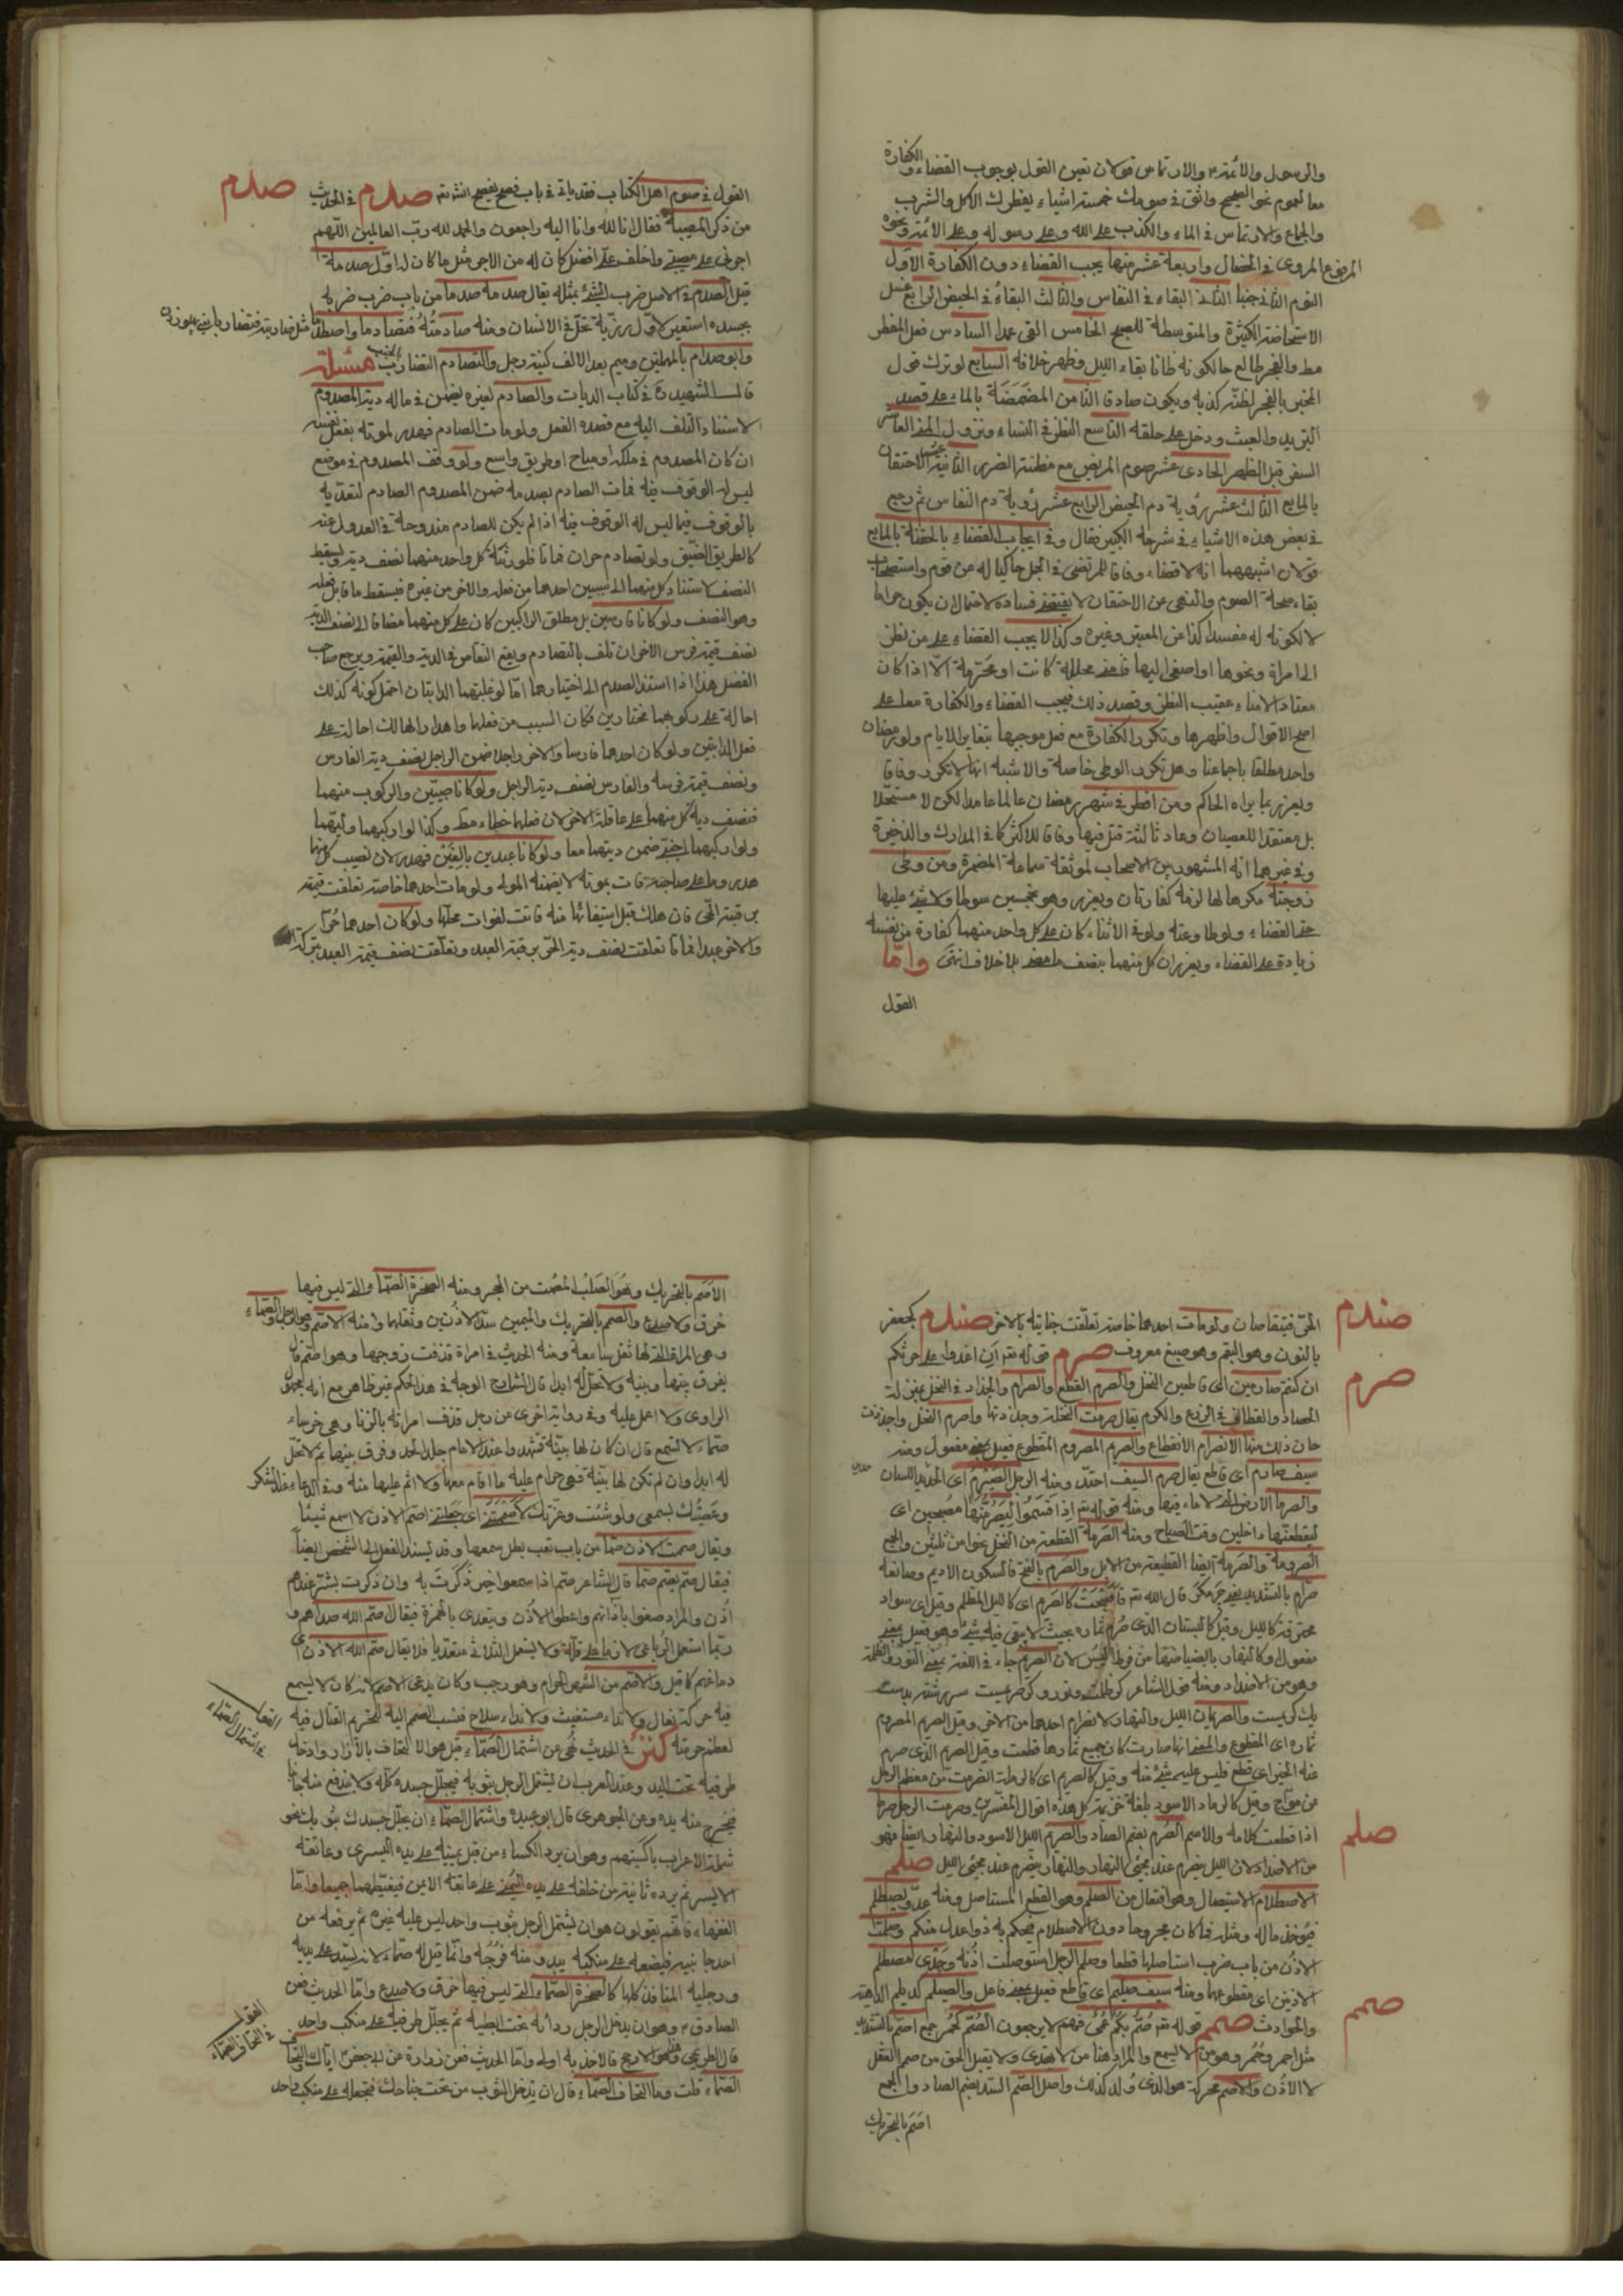 والرسول والأئمة والارتماس قولان تعين القول بوجوب القضاء والكفارة
معا لعموم نحو الصحيح واثق في صومك خمسة اشياء يفطرك الاكل والشرب
والجماع والارتماس في الماء والكذب على الله وعلى رسوله وعلى الأئمة ونحوه
المرفوع المروي في الخصال واربعة عشر منها يجب القضاء دون الكفارة الاول
النوم الثاني جنبا الثاني البقاء في النفاس والثالث البقاء في الحيض الرابع غسل
الاستحاضة الكثيرة والمتوسطة للصبح الخامس القي عمدا السادس فعل المفطر
مط والفجر طالع حالكونه ظانا بقاء الليل وظهر خلافه السابع لو ترك قول
المخبر بالفجر لظنه كذبه ويكون صادقا الثامن المضمضة بالماء على قصد
التبريد والعبث ودخل على حلقه التاسع النظر في النساء ونزول المني العاشر
السفر قبل الظهر الحادي عشر صوم المريض مع مظنة الضرر الثانية عشر الاحتقان
بالمايع الثالث عشر رؤية دم الحيض الرابع عشر رؤية دم النفاس ثم رجع
في بعض هذه الاشياء في شرحه الكبير فقال وفي ايجاب القضاء بالحقنة بالمايع
قولان اشبههما انه لا قضاء وفاقا للمرتضى في الجمل حاكيا له عن قوم واستصحاب
بقاء صحة الصوم والنهي عن الاحتقان لا يقتضي فساده لاحتمال ان يكون حراما
لا لكونه له مفسدا كذا عن المعتبر وغيره وكذا لا يجب القضاء على من نظر
الى امراة ونحوها او اصغى اليها فامنى محللة كانت او محرمة الا اذا كان
معتادا لامناء عقيب النظر وقصد ذلك فيجب القضاء والكفارة معا على
اصح الاقوال واظهرها وتكرر الكفارة مع فعل موجبها بتغاير الايام ولو رمضان
واحد مطلقا باجماعنا وهل تكرر الوطي خاصة والاشبه انها لا تكرر وفاقا
ويعزر بما يراه الحاكم ومن افطر في شهر رمضان عالما عامدا لكن لا مستحلا
بل معتقدا للعصيان وعاد ثالثة قتل فيها وفاقا للاكثر كما في المدارك والذخيرة
وفي غيرهما انه المشهور بين الاصحاب لموثقة سماعة المضمرة ومن وطى
زوجته مكرها لها لزمه كفارتان ويعزر وهو بخمسين سوطا ولا شئ عليها
حتى القضاء ولو طاوعته ولو في الاثناء كان على كل واحد منهما كفارة من نفسه
زيادة على القضاء ويعزران كل منهما بنصف ما مضى بلا خلاف انتهى واما
القول
القول في صوم اهل الكتاب فقد ياتي في باب فصح يفصح انش تع صدم في الحديث
صدم
من ذكر المصيبة فقال انا لله وانا اليه راجعون والحمد لله رب العالمين اللهم
اجرني على مصيبتي واخلف علي افضل كان له من الاجر مثل ما كان له اول صدمة
قيل الصدم في الاصل ضرب الشئ بمثله يقال صدمه صدما من باب ضرب ضربه
بجسده استعير لاول رزية تحل في الانسان ومنه صادمته فتصادما واصطدما مثل ضاربته فتضاربا
وابو صدام بالمهملتين وميم بعد الالف كنية رجل والتصادم التضارب مسئلة
قال الشهيد ره في كتاب الديات والصادم لغيره يضمن في ماله دية المصدوم
لاستناد التلف اليه مع قصده الفعل ولو مات الصادم فهدر لموته بفعل نفسه
ان كان المصدوم في ملكه او مباح او طريق واسع ولو وقف المصدوم في موضع
ليس له الوقوف فيه فمات الصادم بصدمه ضمن المصدوم الصادم لتعديه
بالوقوف فيما ليس له الوقوف فيه اذا لم يكن للصادم مندوحة في العدول عنه
كالطريق الضيق ولو تصادم حران فماتا فلورثة كل واحد منهما نصف ديته ويسقط
النصف لاستناد كل منهما الى سببين احدهما من فعله والاخر من غيره فيسقط ما قابل فعله
وهو النصف ولو كانا فارسين بل مطلق الراكبين كان على كل منهما مضافا الى نصف الدية
نصف قيمة فرس الاخر ان تلف بالتصادم ويقع التقاص في الدية والقيمة ويرجع صاحب
الفضل هذا اذا استند الصدم الى اختيارهما امّا لو غلبتهما الدابتان احتمل كونه كذلك
احالة على ركوبهما مختارين فكان السبب من فعلهما واهدار الهالك احالة على
فعل الدابتين ولو كان احدهما فارسا والاخر راجلا ضمن الراجل نصف دية الفارس
ونصف قيمة فرسه والفارس نصف دية الراجل ولو كانا صبيين والركوب منهما
فنصف دية كل منهما على عاقلة الاخر لان فعلهما خطاء مط وكذا لو اركبهما وليهما
ولو اركبهما اجنبي ضمن ديتهما معا ولو كانا عبدين بالغين فهدر لان نصيب كل منهما
هدر وما على صاحبه فات بموته لا يضمنه المولى ولو مات احدهما خاصة تعلقت قيمته
برقبة الحي فان هلك قبل استيفائها منه فاتت لفوات محلها ولو كان احدهما حرا
والاخر عبدا فماتا تعلقت نصف دية الحر برقبة العبد وتعلقت نصف قيمة العبد بتركة
الحر فيتقاصان ولو مات احدهما خاصة تعلقت جنايته بالاخر صندم كجعفر
صندم
بالنون وهو البقم وهو صبغ معروف صرم قوله تع ان اغدوا على حرثكم
صرم
ان كنتم صارمين اي قاطعين النخل والصرم القطع والصرام والجذاذ في النخل
الحصاد والقطاف في الزرع والكرم يقال صرمت النخلة وجذذتها واصرم النخل واجذ
حان ذلك منها الانصرام الانقطاع والصريم المصروم المقطوع فعيل بمعنى مفعول ومنه
سيف صارم اي قاطع يقال صرم السيف احتد ومنه الرجل الصيرم اي الحديد اللسان
والصرما الارض التي لا ماء فيها ومنه قوله تع اذ اقسموا ليصرمنها مصبحين اي
ليقطعنها داخلين وقت الصباح ومنه الصرمة القطعة من النخل نحوا من ثلثين والجمع
الصرومة والصرمة ايضا القطيعة من الابل والصرم بالفتح فالسكون الاديم وصانعه
صرام بالتشديد قال الله تع فاصبحت كالصريم اي كالليل المظلم وقيل اي سواد
محترقة كالليل وقيل كالبستان الذي صرم ثماره بحيث لا يبقى فيه شئ وهو فعيل بمعنى
مفعول وكالنهار بابيضاضها من فرط اليبس لان الصريم جاء في اللغة بمعنى النور والظلمة
وهو من الاضداد ومنه قول الشاعر
والصريمان الليل والنهار لانصرام احدهما من الاخر وقيل الصريم المصروم
ثماره اي المقطوع والمعنى انها صارت كان جميع ثمارها قطعت وقيل الصريم الذي صرم
عنه الخير اي قطع فليس عليه شئ منه وقيل كالصريم اي كالرملة انصرمت من معظم الرمل
وقيل كالرماد الاسود بلغة خزيمة كل هذه اقوال المفسرين وصرمت الرجل صرما
اذا قطعت كلامه والاسم الصرم بضم الصاد والصريم الليل الاسود والنهار ايضا فهو
من الاضداد لان الليل ينصرم عند مجئ النهار والنهار ينصرم عند مجئ الليل صلم
صلم
الاصطلام الاستيصال وهو افتعال من الصلم وهو القطع المستاصل ومنه عدو يصطلم
فيؤخذ ماله ومثله فما كان مجروحا دون الاصطلام فيحكم به ذوا عدل منكم وصلمت
الاذن من باب ضرب استاصلها قطعا وصلم الرجل استوصلت اذنه وجدي مصطلم
الاذنين اي مقطوعهما ومنه سيف صيلم اي قاطع فعيل بمعنى فاعل والصيلم كديلم الداهية
والحوادث صمم قوله تع صم بكم عمي فهم لا يرجعون الصم كحمر جمع اصم بالتشديد
صمم
مثل احمر وحمر وهو من لا يسمع والمراد هنا من لا يهتدي ولا يقبل الحق من صمم العقل
لا الاذن والاصم محركة هو الذي ولد كذلك واصل الصم السد بضم الصاد والجمع
اصم بالتحريك
الاصم بالتحريك وهو الصلب المصمت من الحجر ومنه الصخرة الصماء والتي ليس فيها
خرق ولا صدع والصمم بالتحريك والميمين سد الاذنين وثقلهما ومنه الاصم وهو الرجل والصماء
وهي المراة التي لها ثقل سامعة ومنه الحديث في امراة قذفت زوجها وهو اصم قال
يفرق بينها وبينه ولا تحل له ابدا قال الشارح الوجه في هذا الحكم غير ظاهر مع انه مجهول
الراوي ولا اعمل عليه وفي رواية اخرى عن رجل قذف امراته بالزنا وهي خرساء
صماء لا تسمع قال ان كان لها بينة فشهدوا عند الامام جلد الحد وفرق بينهما ثم لا تحل
له ابدا وان لم تكن لها بينة فهي حرام عليه ما اقام معها ولا اثم عليها منه وفي الدعاء عند الشكر
وعصيتك بسمعي ولو شئت وعزتك لاصممتني اي جعلتني اصم الاذن لا اسمع شيئا
ويقال صمت الاذن صما من باب تعب بطل سمعها وقد يسند الفعل الى الشخص ايضا
فيقال صم يصم صمما قال الشاعر صم اذا سمعوا خيرا ذكرت به وان ذكرت بشر عندهم
اذن والمراد صغوا باذانهم واعطوا الاذن ويتعدى بالهمزة فيقال اصم الله صداهم و
ربما استعمل الرباعي لازما على قلة ولا يستعمل الثلاثي متعديا فلا يقال صم الله الاذن اي
دماغهم كما قيل والاصم من الشهر الحرام وهو رجب وكان يدعى الاصم لانه كان لا يسمع
فيه حركة قتال ولا نداء مستغيث ولا نداء سلاح فنسب الصمم اليه لتحريم القتال فيه
لعظم حرمته كنز في الحديث نهى عن اشتمال الصماء قيل هو الالتحاف بالازار وادخال
القول
في اشتمال الصماء
طرفيه تحت اليد وعند العرب ان يشتمل الرجل بثوبه فيجلل جسده كله ولا يرفع منه جانبا
فيخرج منه يده وعن الجوهري قال ابو عبيدة واشتمال الصماء ان يجلل جسدك بثوبك نحو
شملة الاعراب باكسيتهم وهو ان يرد الكساء من قبل يمينه على يده اليسرى وعاتقه
الايسر ثم يرده ثانية من خلفه على يده اليمنى على عاتقه الايمن فيغطيهما جميعا وامّا
الفقهاء فانهم يقولون هو ان يشتمل الرجل بثوب واحد ليس عليه غيره ثم يرفعه من
احد جانبيه فيضعه على منكبيه يبدو منه فرجه وانما قيل له صماء لانه يسد على يديه
ورجليه المنافذ كلها كالصخرة الصماء التي ليس فيها خرق ولا صدع واما الحديث فعن
الصادق وهو ان يدخل الرجل ردائه تحت ابطيه ثم يجعل طرفيه على منكب واحد
القول
في التحاف الصماء
قال الطريحي وهذا هو الارجح فالاخذ به اولى واما الحديث فعن زرارة عن ابي جعفر اياك والتحاف
الصماء قلت وما التحاف الصماء قال ان تدخل الثوب من تحت جناحك فتجعله على منكب واحد